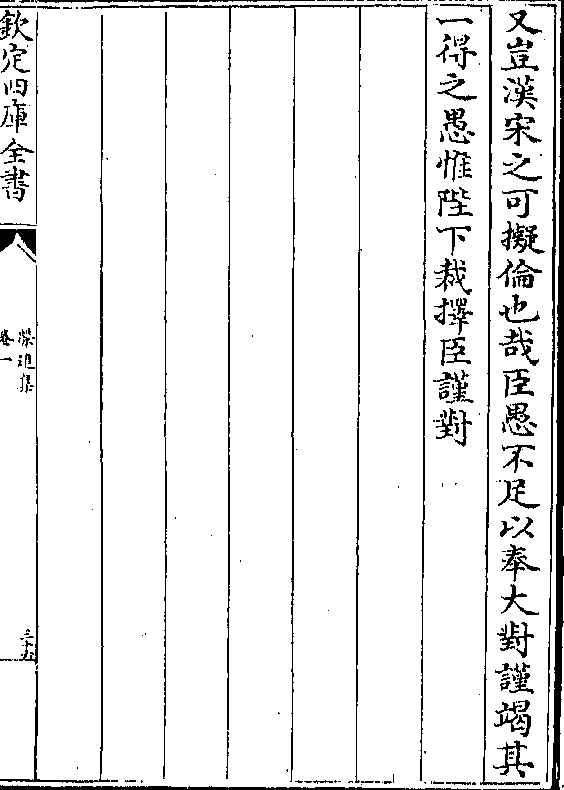 又豈漢宋之可擬倫也哉臣愚不足以奉大對謹竭其
一得之愚惟陛下裁擇臣謹對
欽定四庫全書
榮進集
卷一
三十五